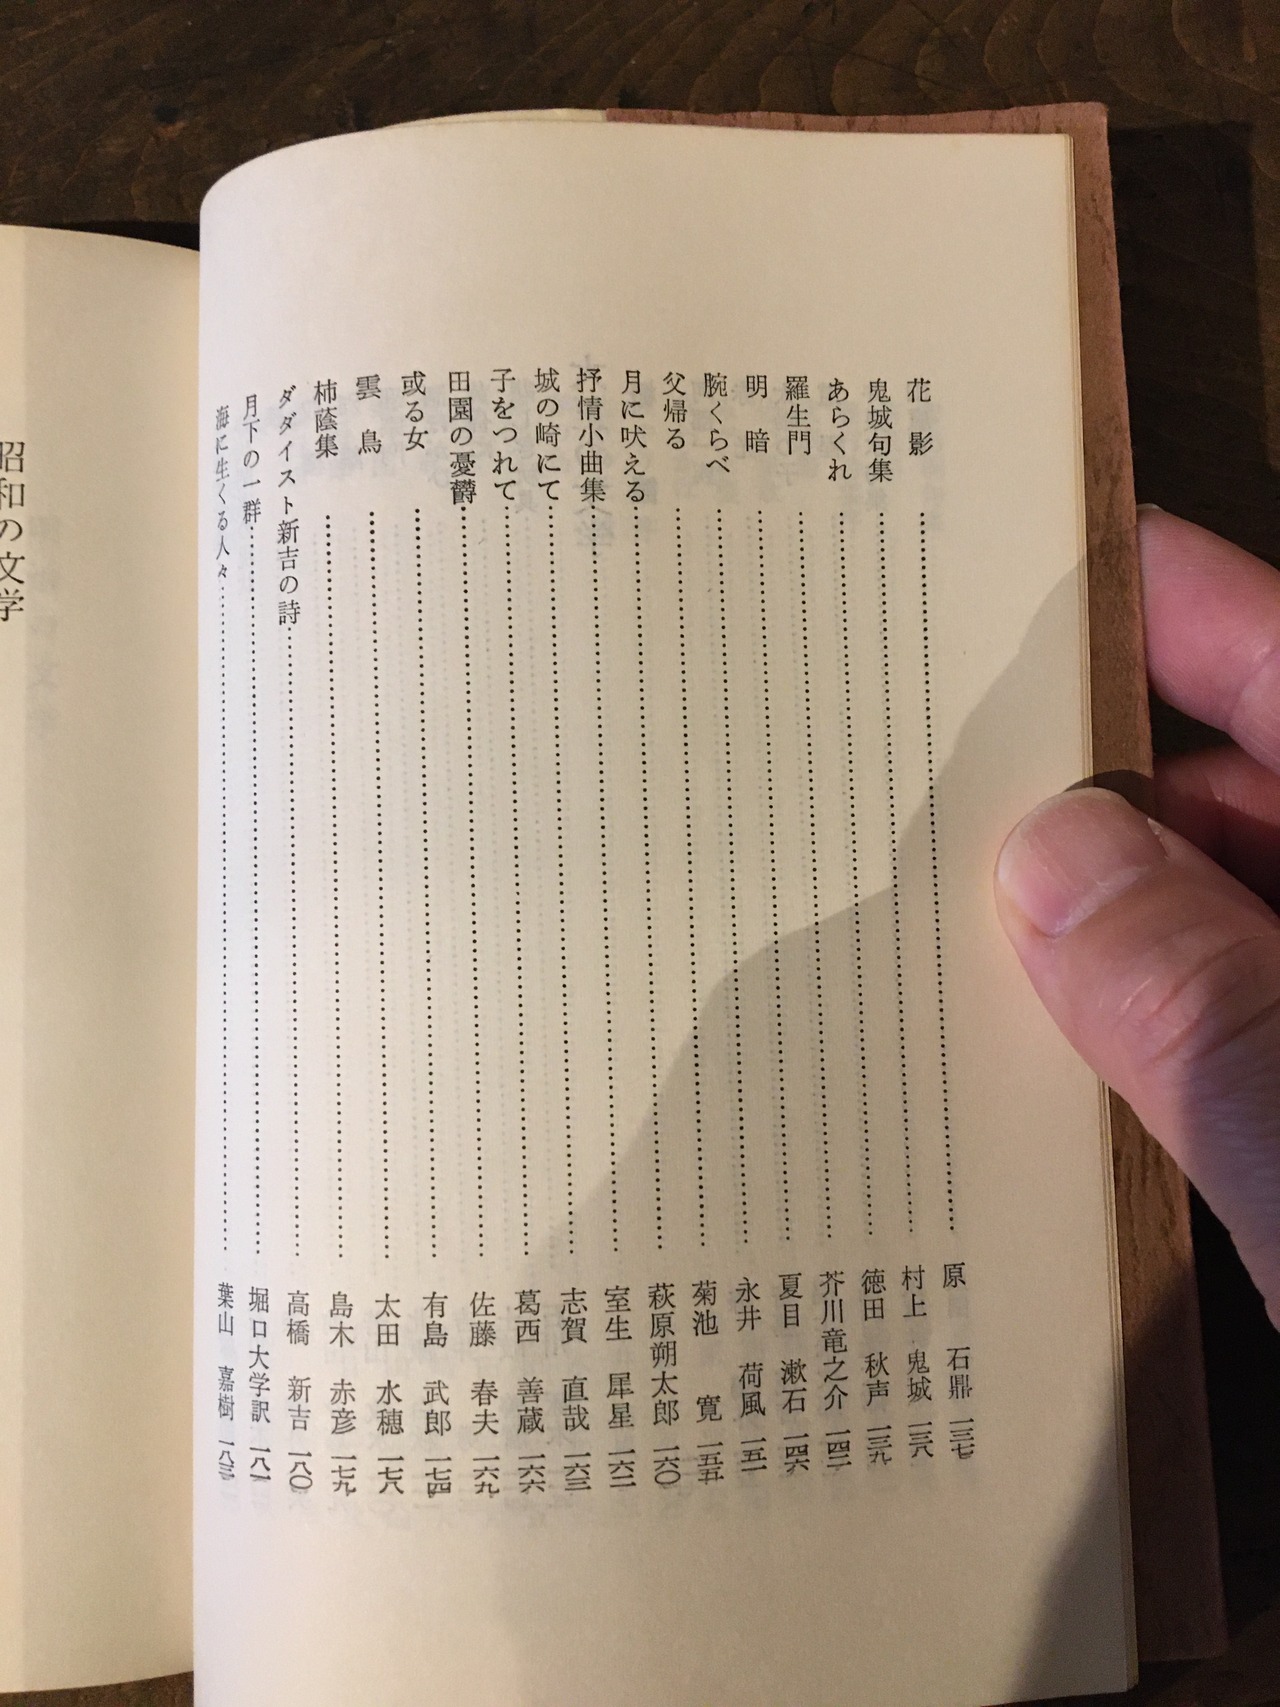 花影……原 石鼎 一三七
鬼城句集……村上 鬼城 一三八
あらくれ……徳田 秋声 一三九
羅生門……芥川竜之介 一四二
明暗……夏目 漱石 一四六
腕くらべ……永井 荷風 一五一
父帰る……菊池 寛 一五五
月に吠える……萩原朔太郎 一六〇
抒情小曲集……室生 犀星 一六二
城の崎にて……志賀 直哉 一六三
子をつれて……葛西 善蔵 一六六
田園の憂欝……佐藤 春夫 一六九
或る女……有島 武郎 一七四
雲鳥……太田 水穂 一七八
柿蔭集……島木 赤彦 一七九
ダダイスト新吉の詩……高橋 新吉 一八〇
月下の一群……堀口大学訳 一八一
海に生くる人々……葉山 嘉樹 一八三
昭和の文学